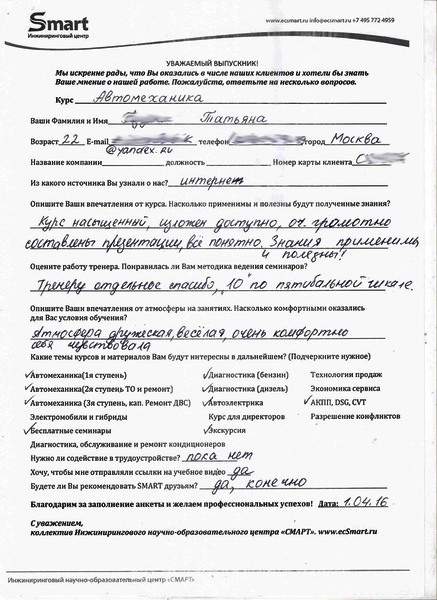 Smart
Инжиниринговый центр
www.ecsmart.ru info@ecsmart.ru +7 495 772 4959
УВАЖАЕМЫЙ ВЫПУСКНИК!
Мы искренне рады, что Вы оказались в числе наших клиентов и хотели бы знать
Ваше мнение о нашей работе. Пожалуйста, ответьте на несколько вопросов.
Курс Автомеханика
Ваши Фамилия и Имя Татьяна
Возраст 22 E-mail @yandex.ru телефон город Москва
Название компании должность Номер карты клиента
Из какого источника Вы узнали о нас? интернет
Опишите Ваши впечатления от курса. Насколько применимы и полезны будут полученные знания?
Курс насыщенный, изложен доступно, оч. грамотно
составлены презентации, всё понятно. Знания применимы
и полезны!
Оцените работу тренера. Понравилась ли Вам методика ведения семинаров?
Тренеру отдельное спасибо, "10" по пятибальной шкале.
Опишите Ваши впечатления от атмосферы на занятиях. Насколько комфортными оказались
для Вас условия обучения?
Атмосфера дружеская, весёлая, очень комфортно
себя чувствовала
Какие темы курсов и материалов Вам будут интересны в дальнейшем? (Подчеркните нужное)
Автомеханика(1я ступень) Диагностика (бензин) Технологии продаж
Автомеханика(2я ступень ТО и ремонт) Диагностика (дизель) Экономика сервиса
Автомеханика (3я ступень, кап. Ремонт ДВС) Автоэлектрика АКПП, DSG, CVT
Электромобили и гибриды Курс для директоров Разрешение конфликтов
Бесплатные семинары Экскурсия
Диагностика, обслуживание и ремонт кондиционеров
Нужно ли содействие в трудоустройстве? пока нет
Хочу, чтобы мне отправляли ссылки на учебное видео да
Будете ли Вы рекомендовать SMART друзьям? да, конечно
Благодарим за заполнение анкеты и желаем профессиональных успехов! Дата: 1.04.16
С уважением,
коллектив Инжинирингового научно-образовательного центра «СМАРТ». www.ecSmart.ru
Инжиниринговый научно-образовательный центр «СМАРТ»